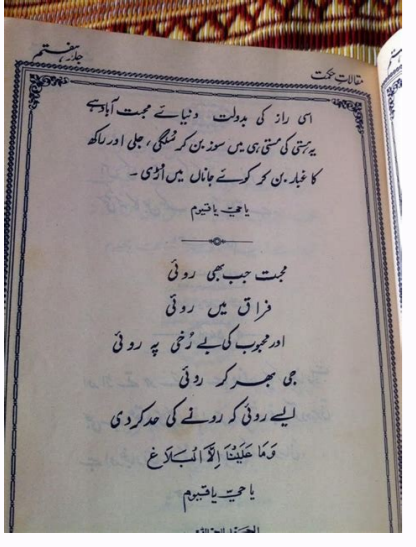 مقالاتِ حکمت
جلد ہفتم
اسی راز کی بدولت دنیائے محبت آباد ہے
یہ ہستی کی مستی ہی میں سوز بن کر سُلگی ، جلی اور راکھ
کا غبار بن کر کوئے جاناں میں اُڑی ۔
یا حیّ یا قیوم
محبت جب بھی روئی
فراق میں روئی
اور محبوب کی بے رُخی پہ روئی
جی بھر کر روئی
ایسے روئی کہ رونے کی حد کر دی
وَمَا عَلَيْنَا إِلَّا الْبَلَاغ
یا حیّ یا قیوم